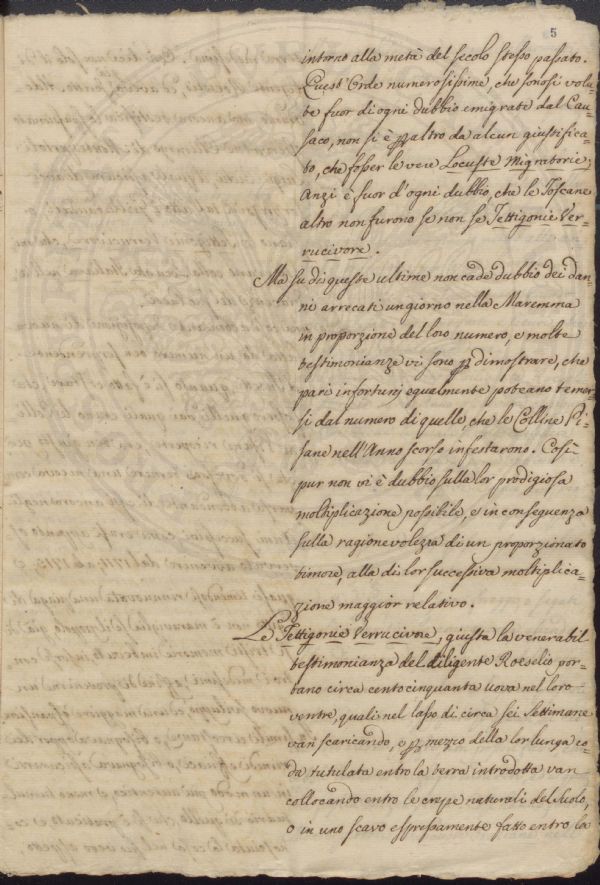 5
intorno alla metà del secolo stesso passato.
Quest'Orde numerosissime, che sonosi volu-
te fuor di ogni dubbio emigrate dal Cau-
saco, non si è per altro da alcun giustifica-
to, che fosser le vere Locuste Migratorie;
Anzi è fuor d'ogni dubbio, che le Toscane
altro non furono se non se Tettigonie Ver-
rucivore.
Ma su di queste ultime non cade dubbio dei dan-
ni arrecati un giorno nella Maremma
in proporzione del loro numero, e molte
testimonianze vi sono per dimostrare, che
pari infortunj egualmente poteano temer-
si dal numero di quelle, che le Colline Pi-
sane nell'Anno scorso infestarono. Così
pur non vi è dubbio sulla lor prodigiosa
moltiplicazione possibile, e in conseguenza
sulla ragionevolezza di un proporzionato
timore, alla di lor successiva moltiplica-
zione maggior relativo.
Le Tettigonie Verrucivore, giusta la venerabil
testimonianza del diligente Roeselio por-
tano circa cento cinquanta uova nel loro
ventre, quali nel lasso di circa sei Settimane
van scaricando, e per mezzo della lor lunga co-
da tutulata entro la terra introdotta van
collocando entro le crepe naturali del Suolo,
o in uno scavo espressamente fatto entro la